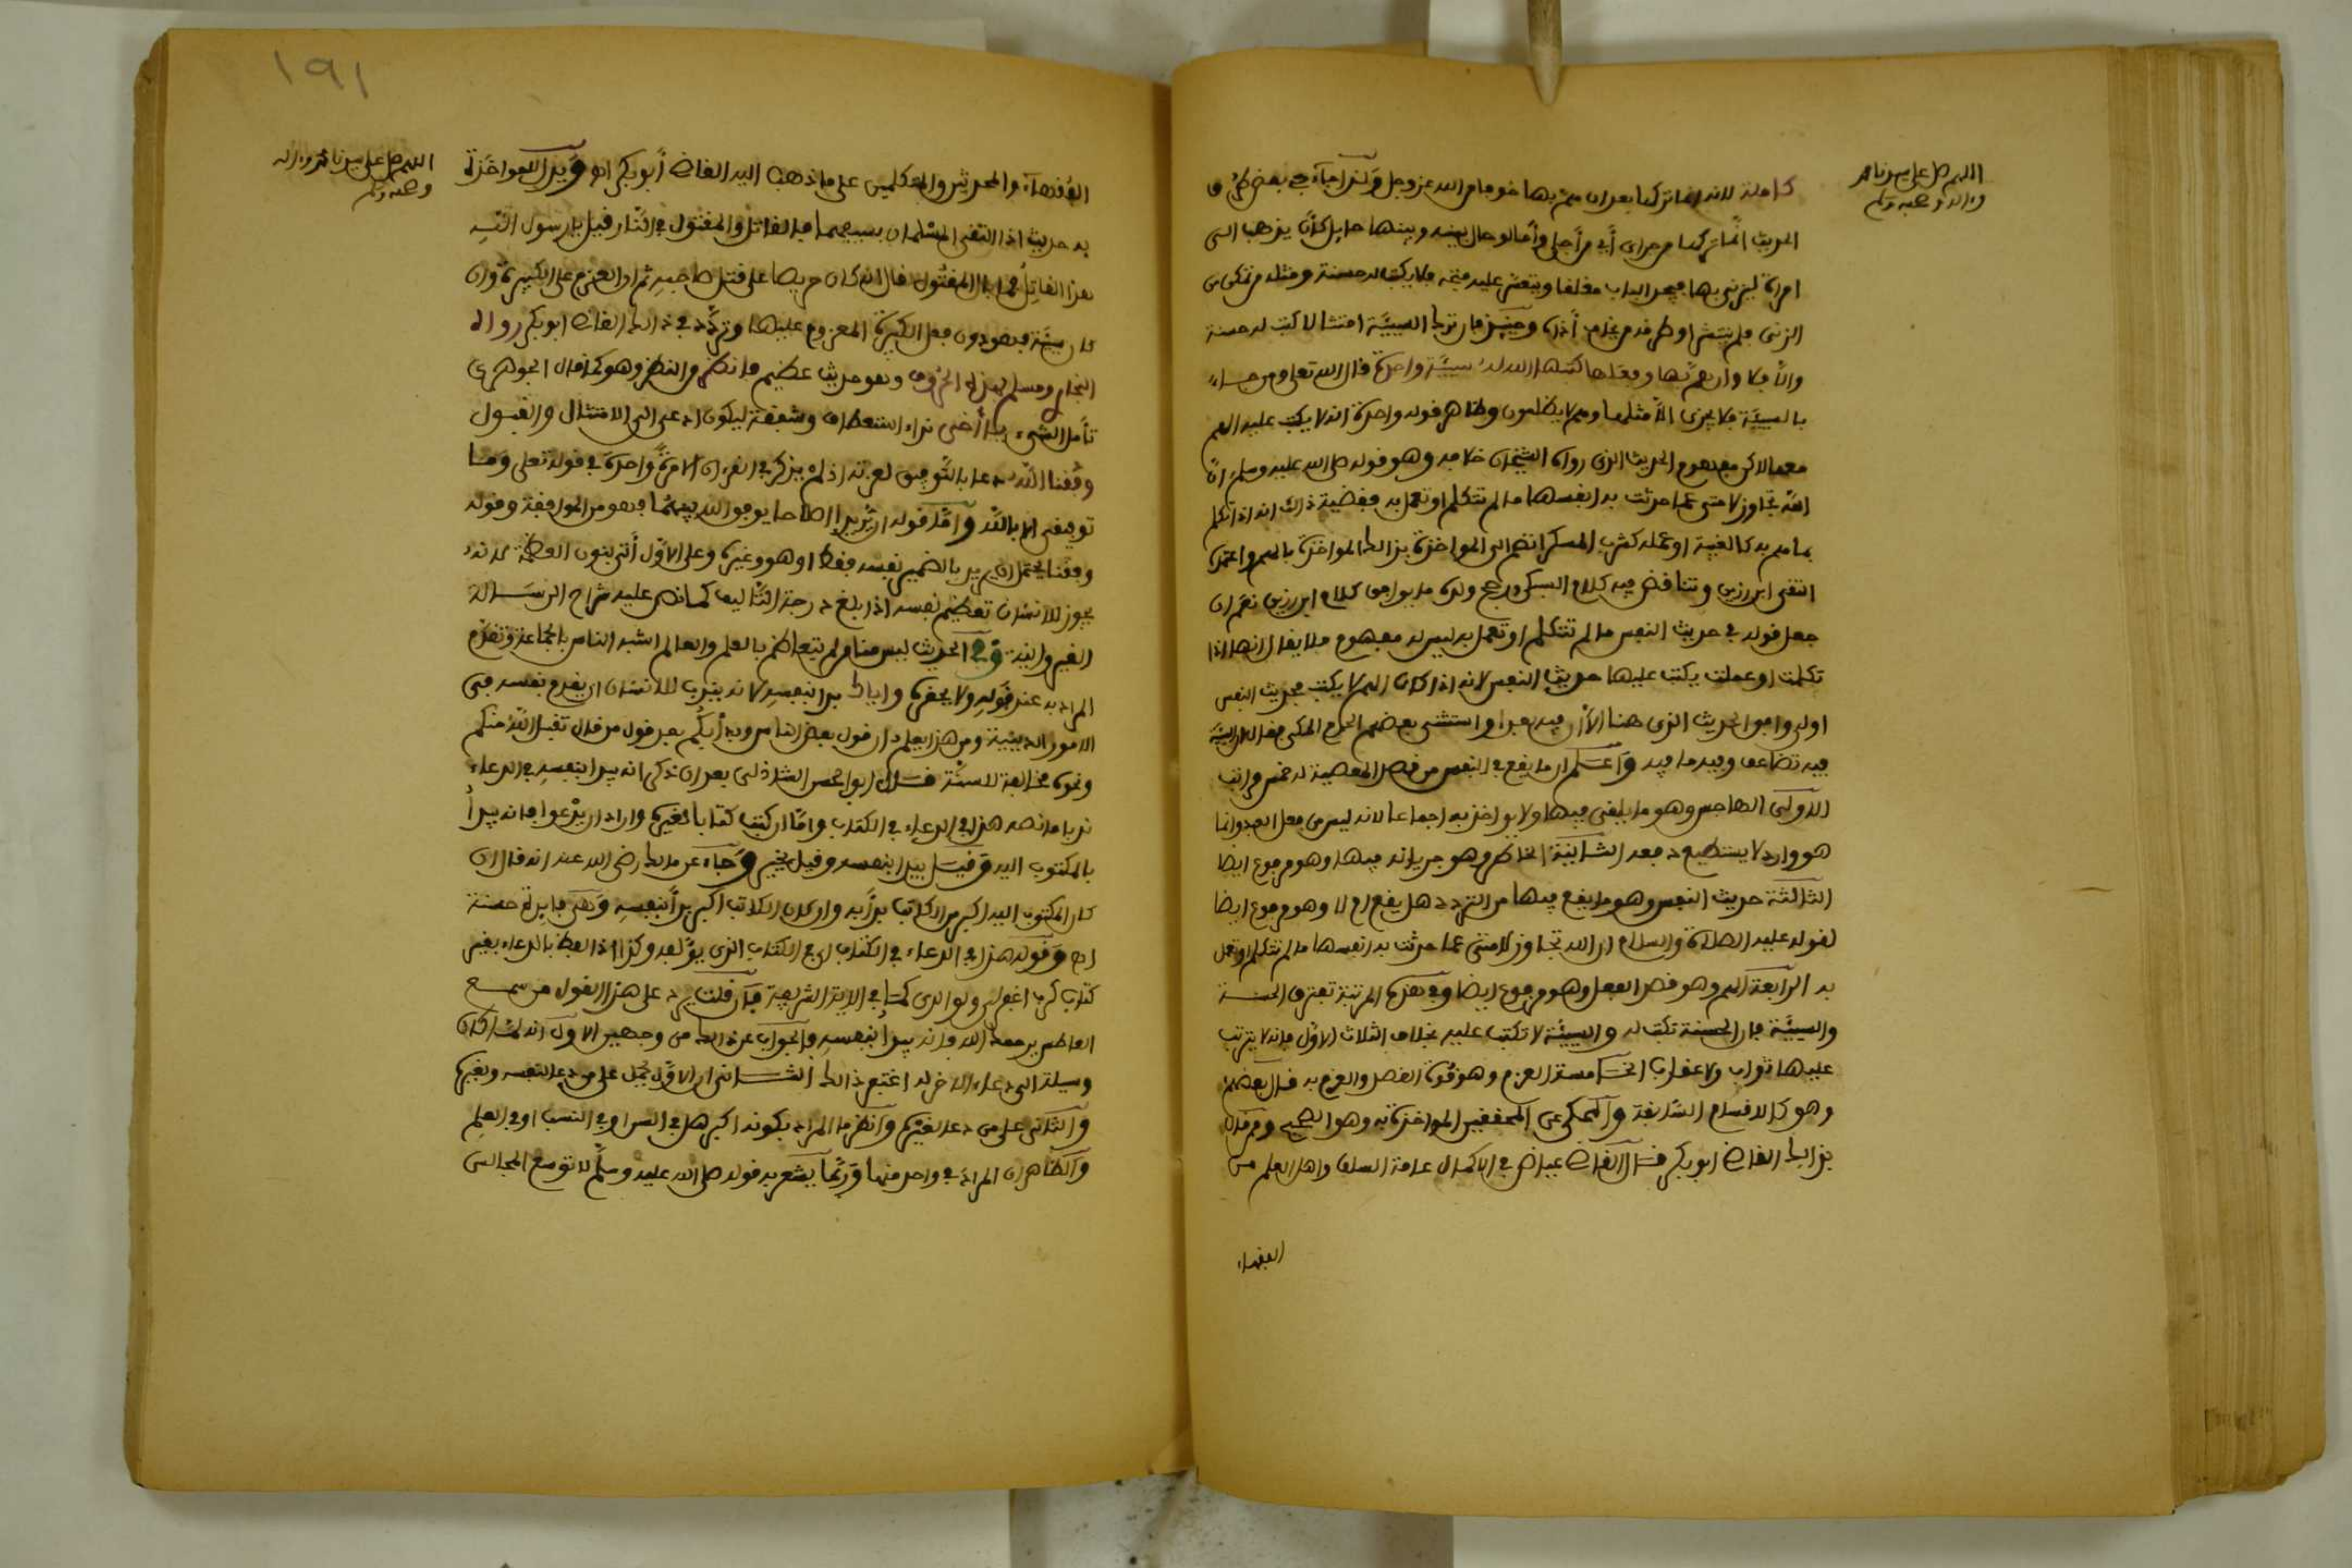 اللهم صل على سيدنا محمد
وءاله وصحبه وسلم
كاملة لانه انما تركها بعد ان هم بها خوفا من الله عز وجل ولذا جاء في بعض طرق
الحديث انما تركها من جراي أي من أجلي وأما لو حال بينه وبينها حايل كان يذهب الى
امراة ليزني بها فيجد الباب مغلقا ويتعسر عليه فتحه فلا يكتب له حسنة ومثله من تمكن من
الزنى فلم ينتشر او طرقه من يخاف أذاه وحينئذ فان ترك السيئة امتثالا كتب له حسنة
والا فلا وان هم بها وفعلها كتبها الله له سيئة واحدة قال الله تعلى ومن جاء
بالسيئة فلا يجزى الا مثلها وهم لا يظلمون وظاهر قوله واحدة انه لا يكتب عليه الهم
معها لاكن مفهوم الحديث الذي رواه الشيخان خلافه وهو قوله صلى الله عليه وسلم ان
الله تجاوز لامتي عما حدثت به انفسها ما لم تتكلم او تعمل به فقضية ذلك انه اذا تكلم
بما هم به كالغيبة او عمله كشرب المسكر انضم الى المواخذة بذالك المواخذة بالهم واعتمده
التقى ابن رزين وتناقض فيه كلام السبكي ورجح ولده ما يوافق كلام ابن رزين نعم ان
جعل قوله في حديث النفس ما لم تتكلم او تعمل به ليس له مفهوم فلا يقال انها اذا
تكلمت او عملت يكتب عليها حديث النفس لانه اذا كان الهم لا يكتب فحديث النفس
اولى وافق الحديث الذي هنا الا ان فيه بعدا واستثنى بعضهم الحرم المكي فقال ان السيئة
فيه تضاعف وفيه ما فيه واعلم ان ما يقع في النفس من قصد المعصية له خمس مراتب
الاولى الهاجس وهو ما يلقى فيها ولا يواخذ به اجماعا لانه ليس من فعل العبد وانما
هو وارد لا يستطيع دفعه الثانية الخاطر وهو جريانه فيها وهو مرفوع ايضا
الثالثة حديث النفس وهو ما يقع فيها من التردد هل يفعل ام لا وهو مرفوع ايضا
لقوله عليه الصلاة والسلام ان الله تجاوز لامتي عما حدثت به انفسها ما لم تتكلم او تعمل
به الرابعة الهم وهو قصد الفعل وهو مرفوع ايضا وفي هذه المرتبة تفترق الحسنة
والسيئة فان الحسنة تكتب له والسيئة لا تكتب عليه بخلاف الثلاث الاول فانه لا يترتب
عليها ثواب ولا عقاب الخامسة العزم وهو قوة القصد والعزم به قال بعضهم
وهو كالاقسام السابقة والمحكي عن المحققين المواخذة به وهو الصحيح وممن قال
بذالك القاضي ابو بكر قال القاضي عياض في الاكمال عامة السلف واهل العلم من
الفقهاء
١٩١
اللهم صل على سيدنا محمد وءاله
وصحبه وسلم
الفقهاء والمحدثين والمتكلمين على ما ذهب اليه القاضي أبو بكر اه ويدل للمواخذة
به حديث اذا التقى المسلمان بسيفيهما فالقاتل والمقتول في النار قيل يا رسول الله
هذا القاتل فما بال المقتول قال انه كان حريصا على قتل صاحبه ثم ان العزم على الكبيرة وان
كان سيئة فهو دون فعل الكبيرة المعزوم عليها وتردد في ذالك القاضي ابو بكر رواه
البخاري ومسلم بهذه الحروف وهو حديث عظيم فانظر والنظر وهو كما قال الجوهري
تأمل الشيء يا أخي نداء استعطاف وشفقة ليكون ادعى الى الامتثال والقبول
وفقنا الله دعا بالتوفيق لعزته اذ لم يذكر في القرءان الا مرة واحدة في قوله تعلى وما
توفيقي الا بالله وأما قوله ان يريدا اصلاحا يوفق الله بينهما فهو من الموافقة وقوله
وفقنا يحتمل ان يريد بالضمير نفسه فقط او هو وغيره وعلى الاول أتى بنون العظمة لانه
يجوز للانسان تعظيم نفسه اذا بلغ درجة التاليف كما نص عليه شراح الرسالة
القيروانية وفي الحديث ليس منا من لم يتعاظم بالعلم والعالم اشبه الناس بالجماعة وتقدم
المراد به عند قوله ولا يحقره واياك بدا بنفسه لانه يندب للانسان ان يقدم نفسه في
الامور الدينية ومن هذا يعلم ان قول بعض الناس وبه أبدأكم بعد قول من قال تقبل الله منكم
ونحوه مخالفة للسنة قال ابو الحسن الشاذلي بعد ان ذكر انه يبدا بنفسه في الدعاء
ندبا ما نصه هذا في الدعاء في الكتاب واما ان كتب كتابا لغيره واراد ان يدعوا فانه يبدأ
بالمكتوب اليه وقيل يبدا بنفسه وقيل يخير وجاء عن مالك رضي الله عنه انه قال ان
كان المكتوب اليه اكبر من الكاتب بدأ به وان كان الكاتب اكبر بدأ بنفسه وهي فايدة حسنة
اه وقوله هذا في الدعاء في الكتاب اي في الكتاب الذي يؤلفه وكذا اذا لفظ بالدعاء بغير
كتاب كرب اغفر لي ولوالدي كما في الاية الشريفة فان قلت يرد على هذا القول من سمع
العاطس يحمد الله فانه يبدأ بنفسه فالجواب عن ذالك من وجهين الاول انه لما كان
وسيلة الى دعاء الاخر له اغتفر ذالك الثاني ان الاول يحمل على من دعا لنفسه ولغيره
والثاني على من دعا لغيره وانظر ما المراد بكونه اكبر هل في السن او في النسب او في العلم
والظاهر ان المراد في واحد منها وربما يشعر به قوله صلى الله عليه وسلم لا توسع المجالس